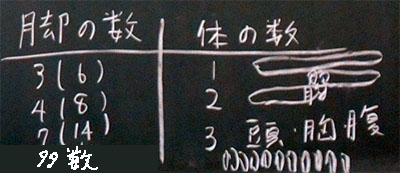 脚の数 体の数
3(6) 1
4(8) 2
7(14) 3 頭・胸腹
99数